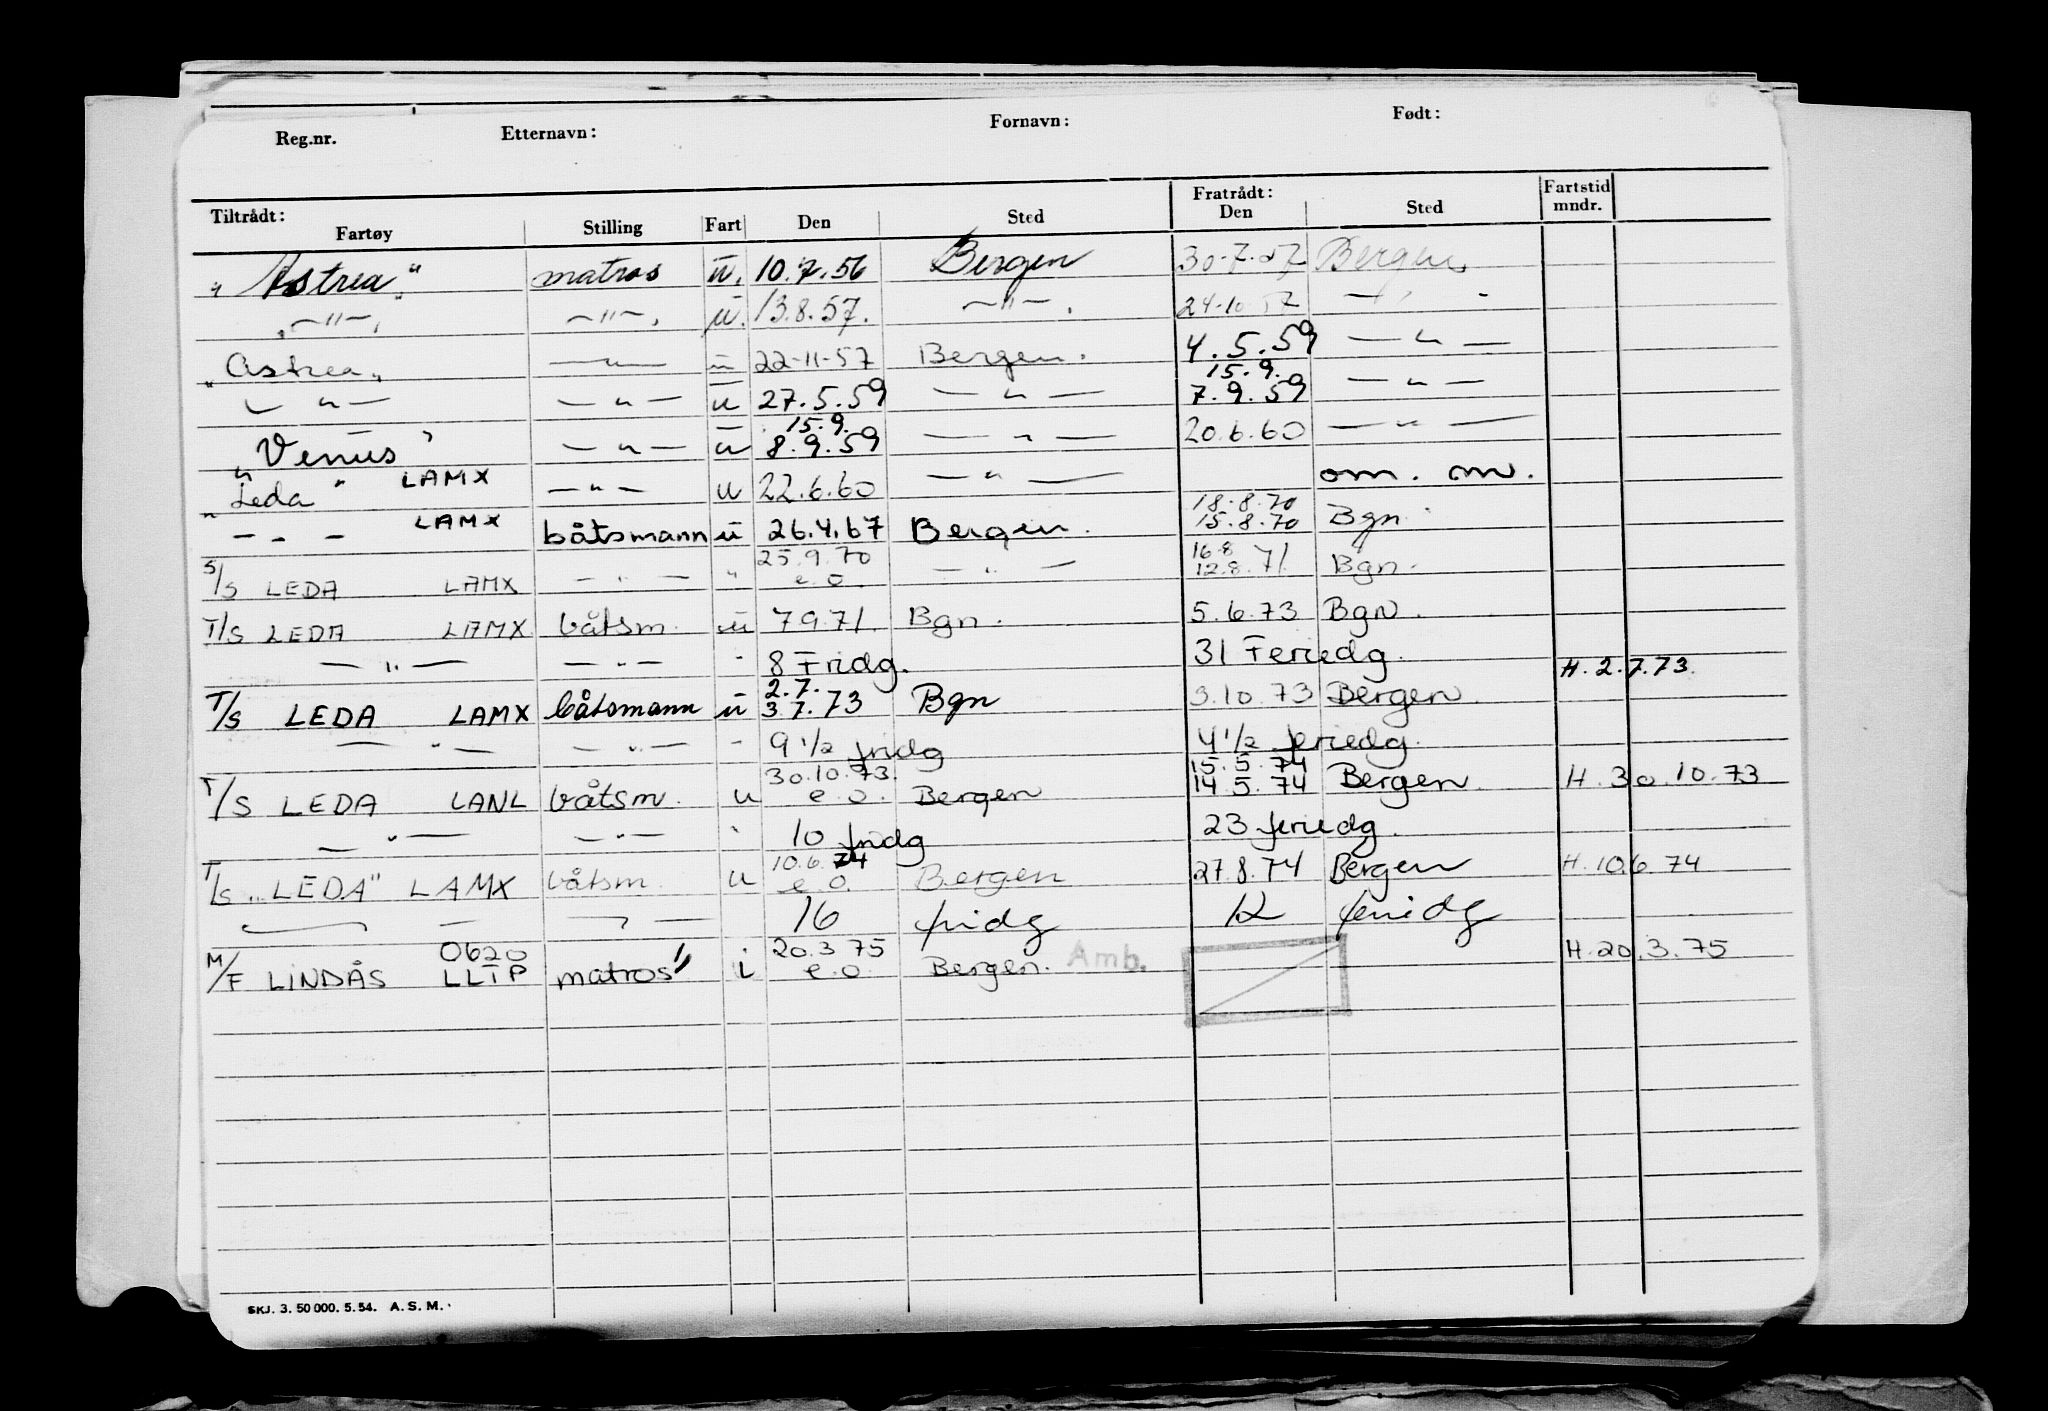 Reg.nr. Etternavn: Fornavn: Født:
Tiltrådt: Fratrådt: Fartstid
Fartøy Stilling Fart Den Sted Den Sted mndr.
„Astrea" matros u. 10.7.56 Bergen 30-7.57 Bergen
— " — — " — u. 13.8.57. — " — . 24-10-57 — " —
„Astrea„ — " — u 22-11-57 Bergen. 4.5.59 — " —
— " — — " — u 27.5.59 — " — 15.9. 7.9.59 — " —
„Venus" — " — u 15.9. 8.9.59 — " — 20.6.60 — " —
„Leda" LAMX — " — u 22.6.60 — " — om. m.
— " — LAMX båtsmann u 26.4.67 Bergen. 18.8.70 15.8.70 Bgn.
S/S LEDA LAMX — " — " 25.9.70 e.o. — " — 16.8 12.8.71 Bgn.
T/S LEDA LAMX båtsm. u 7.9.71. Bgn. 5.6.73 Bgn.
— " — — " — " 8 Fridg. 31 Feriedg.
T/S LEDA LAMX båtsmann u 2.7. 3.7.73 Bgn 3.10.73 Bergen H. 2.7.73.
— " — — " — " 9 1/2 fridg 4 1/2 feriedg.
T/S LEDA LANL båtsm. u 30.10.73. e.o. Bergen 15.5.74 14.5.74 Bergen. H. 30.10.73
— " — — " — " 10 fridg 23 feriedg.
T/S „LEDA" LAMX båtsm. u 10.6.74 e.o. Bergen 27.8.74 Bergen H. 10.6.74
— " — — " — 16 fridg 12 feriedg
M/F LINDÅS 0620 LLTP matros" i 20.3.75 e.o. Bergen. Amb. H. 20.3.75
SKJ. 3. 50 000. 5. 54. A. S. M.